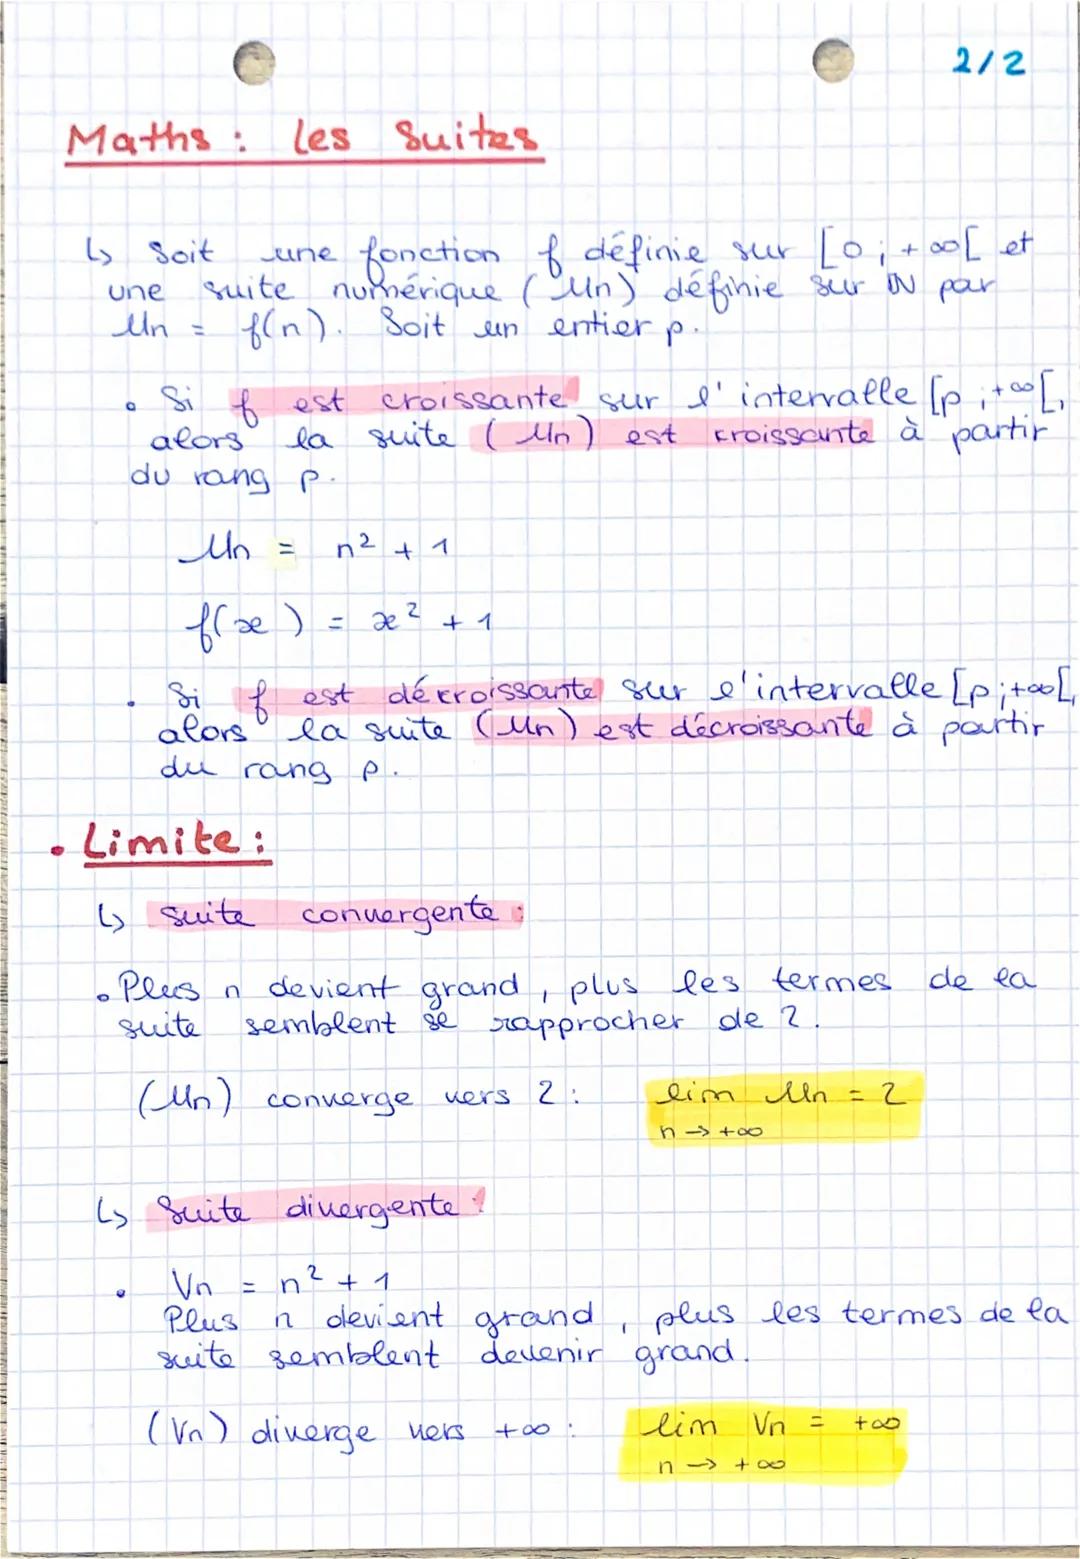 2/2
Maths : les Suites
↳ Soit une fonction f définie sur [0 ; +∞[ et
une suite numérique (Un) définie sur ℕ par
Un = f(n). Soit un entier p.
• Si f est croissante sur l'intervalle [p ; +∞[,
alors la suite (Un) est croissante à partir
du rang p.
Un = n² + 1
f(x) = x² + 1
• Si f est décroissante sur l'intervalle [p ; +∞[,
alors la suite (Un) est décroissante à partir
du rang p.
• Limite :
↳ suite convergente :
• Plus n devient grand, plus les termes de la
suite semblent se rapprocher de 2.
(Un) converge vers 2 : lim Un = 2
n → +∞
↳ Suite divergente :
• Vn = n² + 1
Plus n devient grand, plus les termes de la
suite semblent devenir grand.
(Vn) diverge vers +∞ : lim Vn = +∞
n → +∞